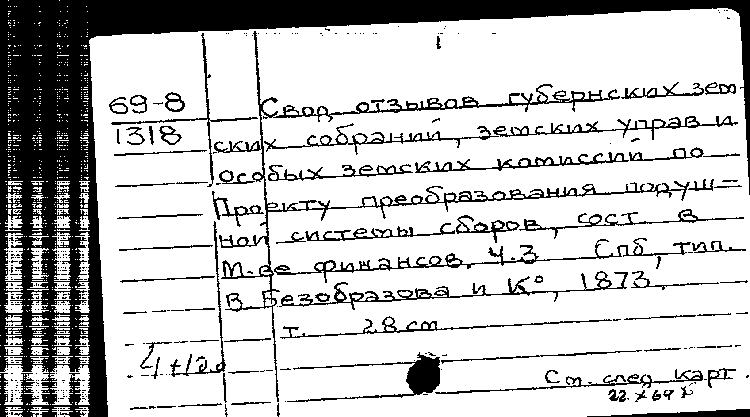 1
69-8 Свод отзывов губернских зем-
1318 ских собраний, земских управ и
особых земских комиссий по
Проекту преобразования подуш-
ной системы сборов, сост. в
М-ве финансов. Ч.3 Спб, тип.
В. Безобразова и К°, 1873.
т. 28 cm
См. след. карт.
22 X 69